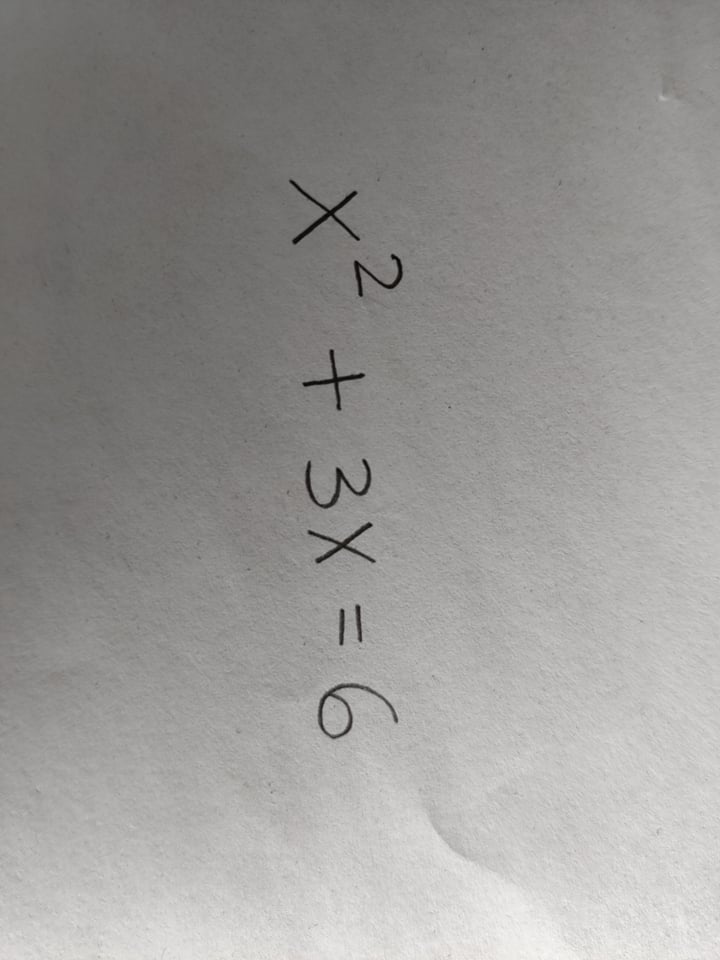 x² + 3x = 6